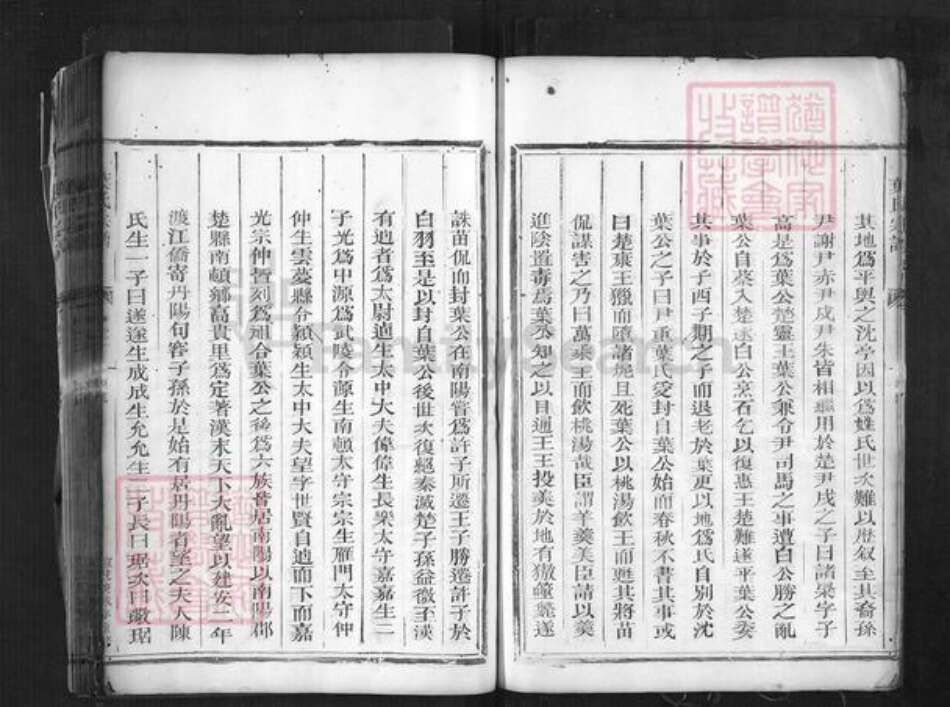 其地爲平輿之沈亭因以爲姓氏世次難以歷叙至其裔孫
尹謝尹赤尹戌尹朱皆相繼用於楚尹戌之子曰諸梁字子
高是爲葉公楚靈王葉公兼令尹司馬之事遭白公勝之亂
葉公自蔡入楚逐白公烹石乞以復惠王楚難遂平葉公委
其事於子西子期之子而退老於葉更以地爲氏自別於沈
葉公之子曰尹重葉氏受封自葉公始而春秋不書其事或
曰楚襄王獵而墮諸 且死葉公以桃湯飲王而甦其將苗
侃謀害之乃曰萬乘王而飲桃湯哉臣謂羊羹美臣請以羹
進陰置毒焉葉公知之以目通王王投羹於地有獒 斃遂
誅苗侃而封葉公在南陽嘗爲許子所遷王子勝遷許于
白羽至是以封自葉公後世次復絕秦滅楚子孫益微至漢
有逈者爲太尉逈生太中大夫偉偉生長樂太守嘉嘉生二
子光爲甲源爲武陵令源生南頓太守宗宗生雁門太守仲
仲生雲夢縣令穎穎生太中大夫望字世賢自逈而下而嘉
光宗仲皆列爲祖合葉公之後爲六族昔居南陽以南陽郡
楚縣南頓鄉高貴里爲定著漢末天下大亂望以建安二年
渡江僑寄丹陽句容子孫於是始有居丹陽者望之夫人陳
氏生一子曰遂遂生成成生允允生二子長曰琚次曰 琚